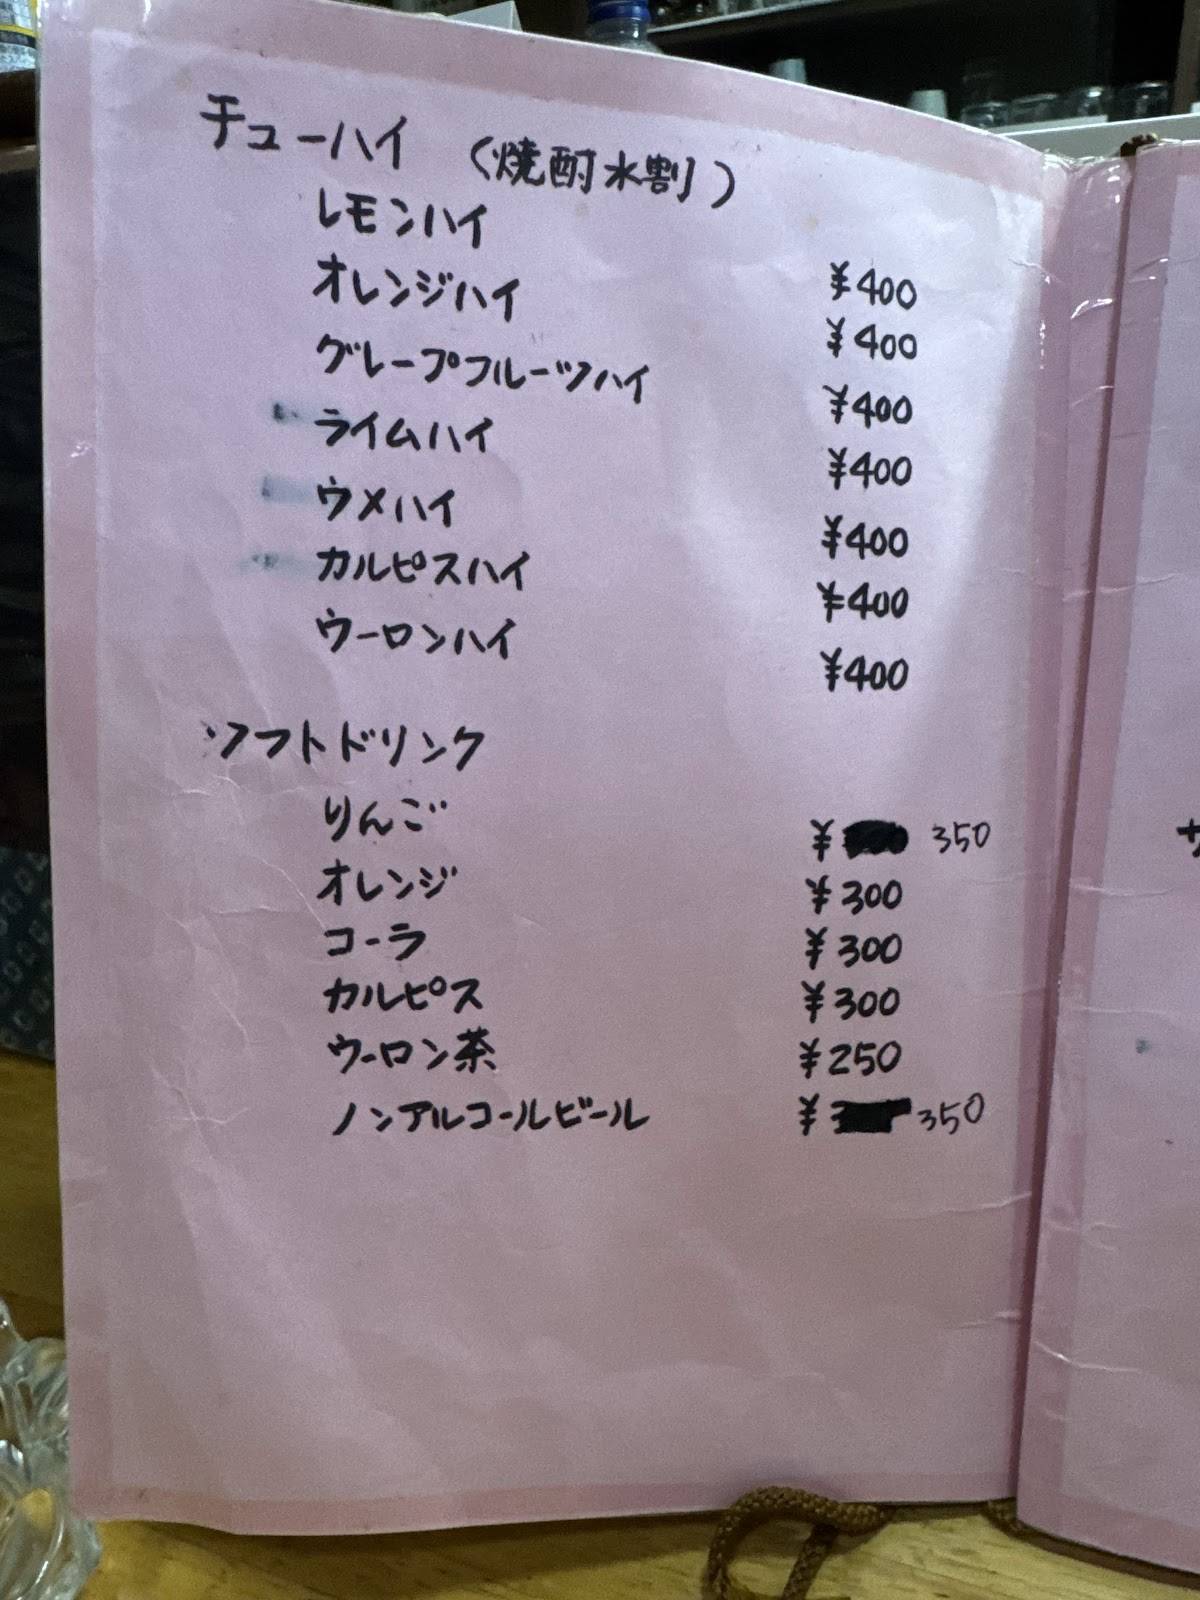 チューハイ (焼酎水割)
レモンハイ ¥400
オレンジハイ ¥400
グレープフルーツハイ ¥400
ライムハイ ¥400
ウメハイ ¥400
カルピスハイ ¥400
ウーロンハイ ¥400
ソフトドリンク
りんご ¥ 350
オレンジ ¥300
コーラ ¥300
カルピス ¥300
ウーロン茶 ¥250
ノンアルコールビール ¥ 350